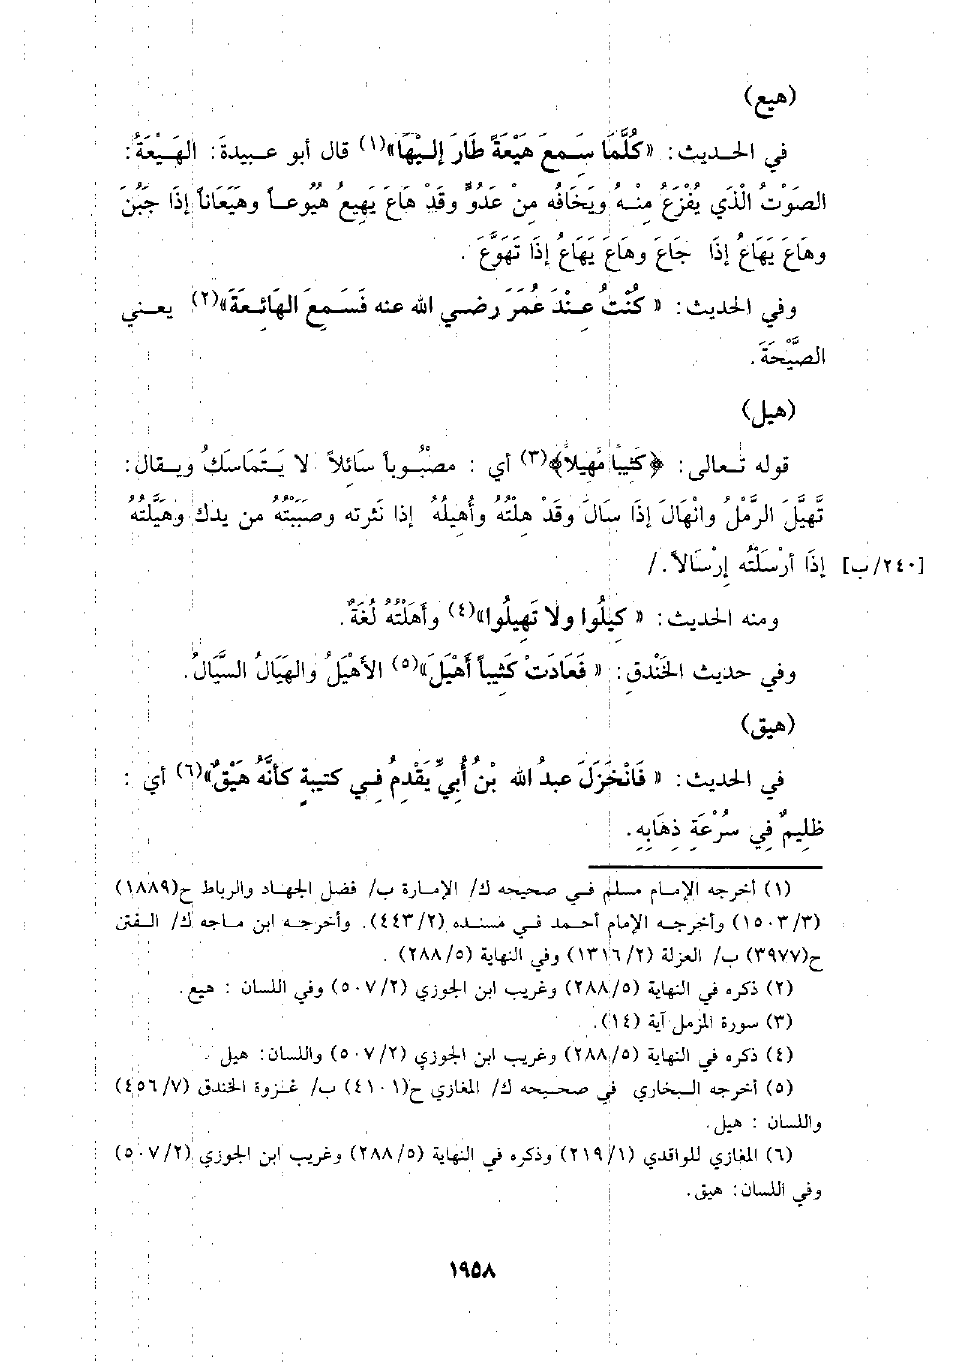 (هيع)
في الحديث: «كُلَّمَا سَمعَ هَيْعَةً طَارَ إليْهَا»(١) قال أبو عبيدةَ: الهَيْعَةُ:
الصَوْتُ الْذَي يُفْزَعُ مِنْهُ ويَخَافُه مِنْ عَدُوٍّ وقَدْ هَاعَ يَهِيعُ هُيُوعاً وهَيَعَاناً إذَا جَبُنَ
وهَاعَ يَهَاعُ إذَا جَاعَ وهَاعَ يَهَاعُ إذَا تَهَوَّعَ .
وفي الحديث: « كُنْتُ عِنْدَ عُمَرَ رضي الله عنه فَسَمِعَ الهَائِعَةَ»(٢) يعني
الصَّيْحَةَ.
(هيل)
قوله تعالى: ﴿كَثيباً مَّهيلاً﴾(٣) أي : مصْبُوباً سَائلاً لا يَتَماسَكُ ويقال:
تَّهيَّلَ الرَّمْلُ وانْهَالَ إذَا سَالَ وقَدْ هِلْتُهُ وأُهيلُهُ إذا نَثرته وصَبَبْتُهُ من يدك وهَيَّلتُهُ
[٢٤٠/ب] إذَا أرْسَلْتُه إرْسَالاً./
ومنه الحديث: « كِيلُوا ولا تَهِيلُوا»(٤) وأهَلْتُهُ لُغَةٌ.
وفي حديث الخَنْدقِ: « فَعَادَتْ كَثِيباً أَهْيَلَ»(٥) الأهْيَلُ والهَيَالُ السَّيَالُ.
(هيق)
في الحديث: « فَانْخَزَلَ عبدُ الله بْنُ أُبيٍّ يَقْدِمُ فِي كتيبةٍ كأنَّهُ هَيْقٌ»(٦) أي :
ظليمٌ فِي سُرْعَةِ ذِهَابِهِ.
(١) أخرجه الإمام مسلم في صحيحه ك/ الإمارة ب/ فضل الجهاد والرباط ح(١٨٨٩)
(١٥٠٣/٣) وأخرجه الإمام أحمد في مسنده (٤٤٣/٢). وأخرجه ابن ماجه ك/ الفتن
ح(٣٩٧٧) ب/ العزلة (١٣١٦/٢) وفي النهاية (٢٨٨/٥) .
(٢) ذكره في النهاية (٢٨٨/٥) وغريب ابن الجوزي (٥٠٧/٢) وفي اللسان : هيع.
(٣) سورة المزمل آية (١٤).
(٤) ذكره في النهاية (٢٨٨/٥) وغريب ابن الجوزي (٥٠٧/٢) واللسان: هيل .
(٥) أخرجه البخاري في صحيحه ك/ المغازي ح(٤١٠١) ب/ غزوة الخندق (٤٥٦/٧)
واللسان : هيل.
(٦) المغازي للواقدي (٢١٩/١) وذكره في النهاية (٢٨٨/٥) وغريب ابن الجوزي (٥٠٧/٢)
وفي اللسان: هيق.
١٩٥٨